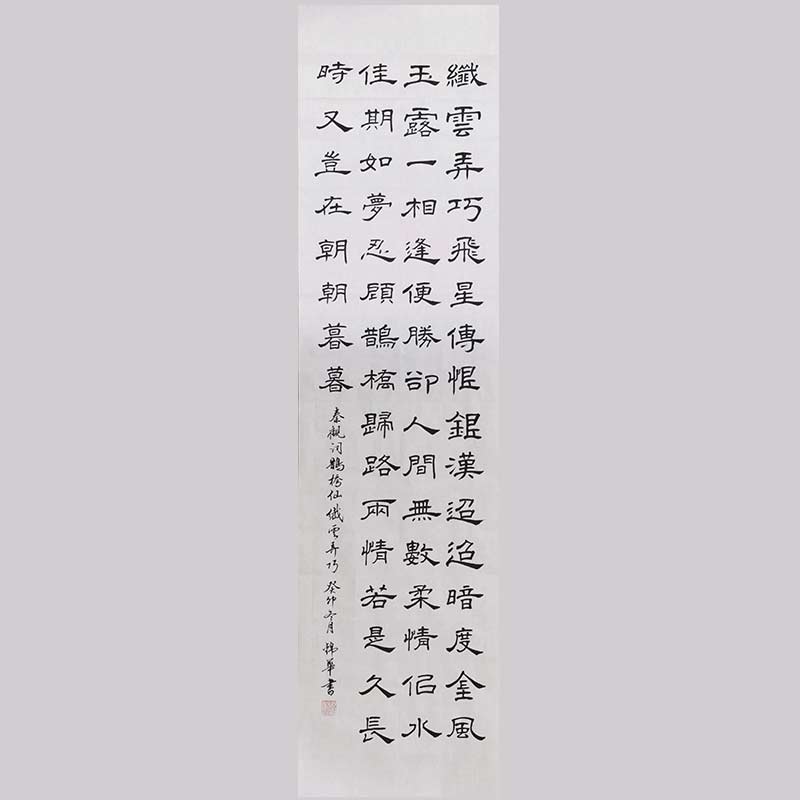 纖雲弄巧飛星傳恨銀漢迢迢暗度金風
玉露一相逢便勝卻人間無數柔情似水
佳期如夢忍顧鵲橋歸路兩情若是久長
時又豈在朝朝暮暮
秦觀詞鵲橋仙纖雲弄巧 癸卯冬月 錦華書